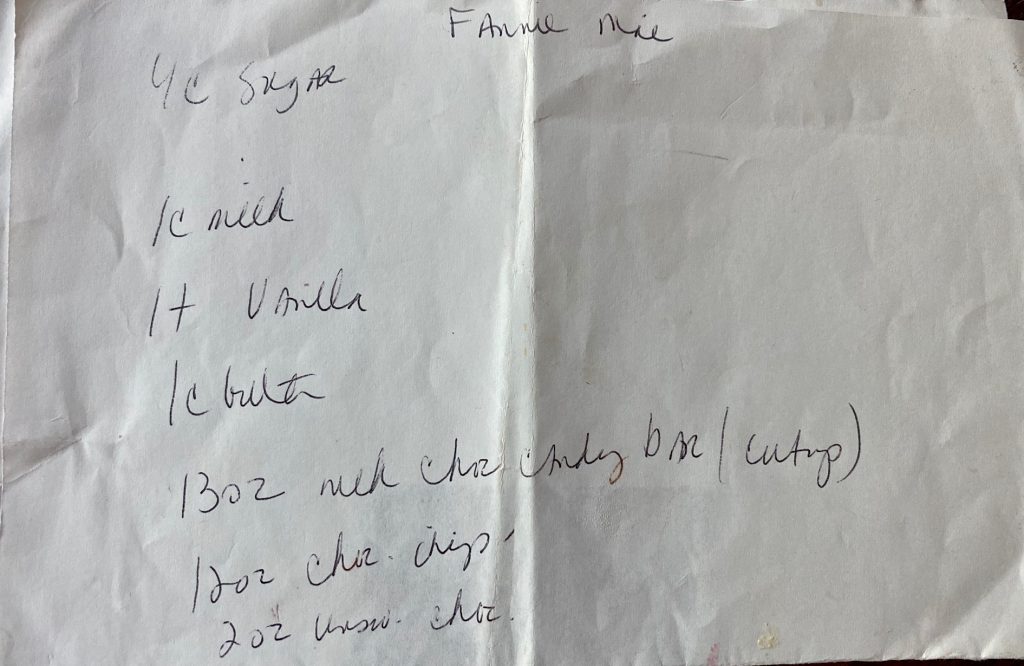 Fannie Mae
4c Sugar
1c milk
1t Vanilla
1c butter
13oz milk choc candy bar (cut up)
12oz choc. chips
2oz unsw. choc.